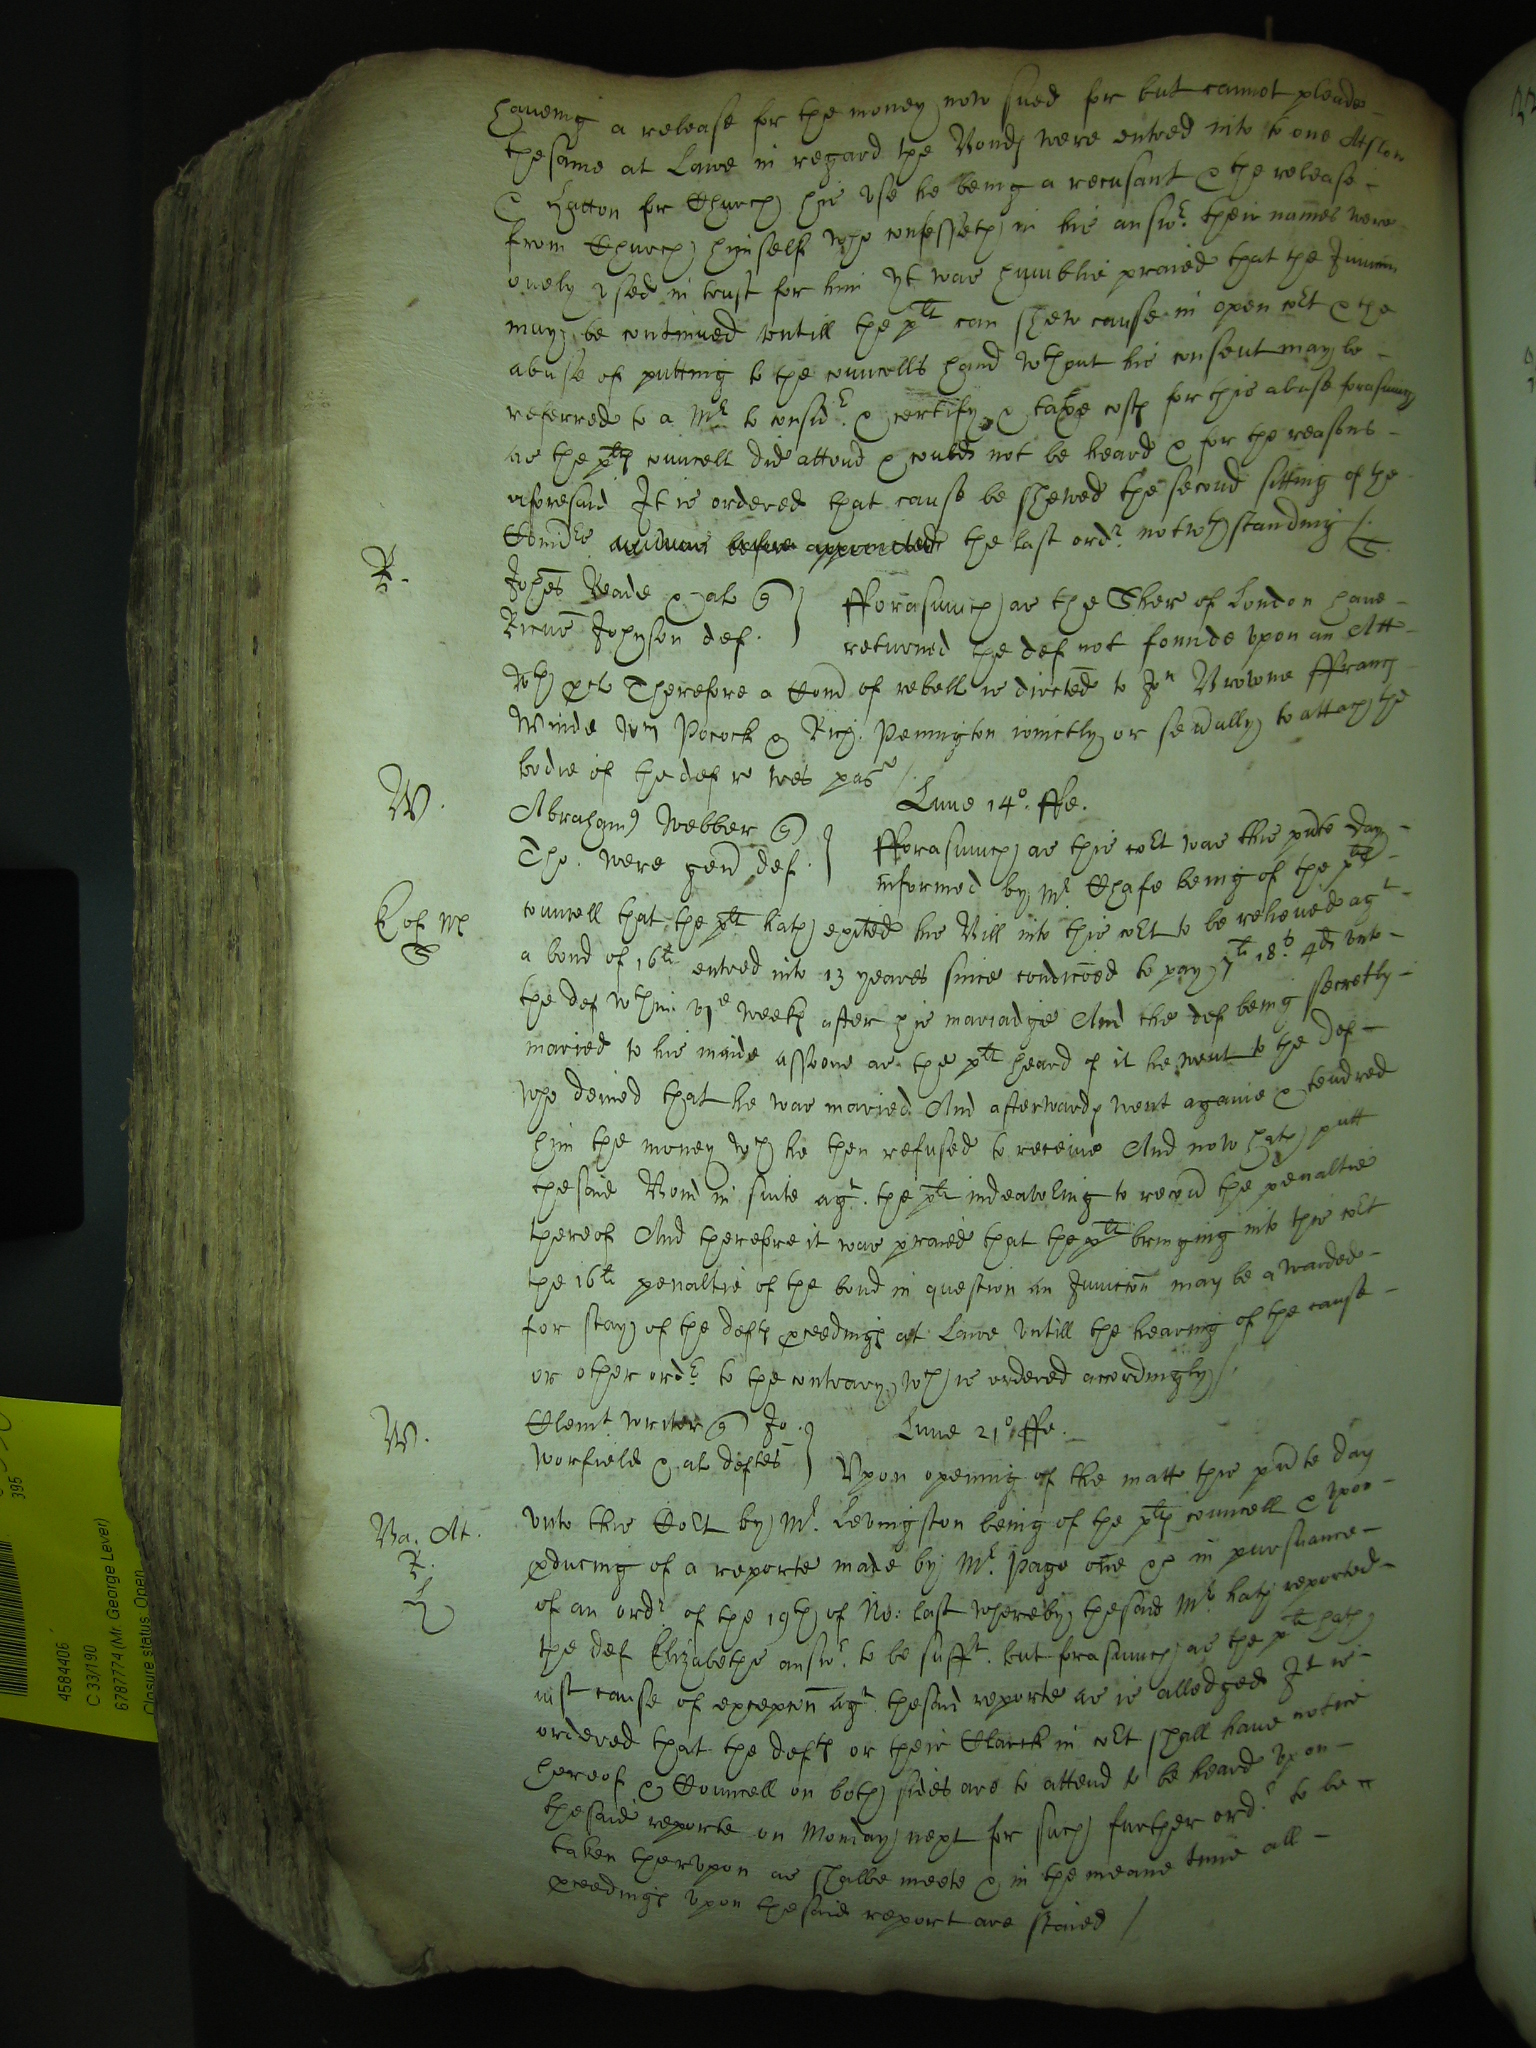 haueing a release for the money now sued for but cannot pleade
thesame at Lawe in regard the Bonds were entred into to one Atslow
& Hatton for Church his vse he being a recusant & the release
from Church himself who confesseth in his answr their names were
onely vsed in trust for him yt was humblie praied that the Iniunc
may be continued vntill the plt can shew cause in open cort & the
abuse of putting to the councells hand wthout his consent may be
referred to a Mr to considr & certify & taxe costs for this abuse forasmuch
as the plts councell did attend & could not be heard & for the reasons
aforesaid It is ordered that cause be shewed the second sitting of the
before appointed the last ordr notwthstanding /
R.
Johes Reade & al q
Ricus Johnson def.
fforasmuch as the Sher of London haue
returned the def not founde vpon an Att
wth pcl Therefore a Com of rebell is directed to Jon Browne ffranc
Winde Wm Pocock & Rich. Pennington iointly or seually to attach the
bodie of the def
W.
Lune 14o. ffe.
Abrahams Webber q
Tho. Were gen def.
fforasmuch as this cort was this pnte day
informed by Mr Chafe being of the plts
councell that the plt hath exited his Bill into this cort to be releeued agt
a bond of 16li entred into 13 yeares since condicoed to pay 7li 18s. 4d vnto
the def wthin vje weeks after his mariadge And the def being secretly
maried to his maide assoone as the plt heard of it he went to the def
who denied that he was maried And afterwards went againe & tendred
him the money wch he then refused to receiue And now hath putt
thesaid Bond in suite agt. the plt indeavoring to recou the penaltie
thereof And therefore it was praied that the plt bringing into this cort
the 16li penaltie of the bond in question an Iniunction may be awarded
for stay of the defts pceedings at Lawe vntill the hearing of the cause
or other ordr to the contrary, wch is ordered accordingly /
W.
Clemt. Writer q Jo.
Worfield & al deftes
Lune 21o ffe.
Vpon opening of the matt this pnte day
Ba. At.
R.
vnto this Cort by Mr. Levingston being of the plts councell & vpon
pducing of a reporte made by Mr. Page one &c in pursuance
of an ordr of the 19th of No: last whereby thesaid Mr hath reported
the def Elizabethe answr. to be sufft. but forasmuch as the plt hath
iust cause of excepcon agt. thesaid reporte as is alledged It is
ordered that the defts or their Clarck in cort shall haue notice
hereof & Councell on both sides are to attend to be heard vpon
thesaid reporte on Monday next for such further ordr to be
taken thervpon as shalbe meete & in the meane time all
pceedings vpon thesaid report are staied /
395
4584406
C 33/190
6787774 (Mr. George Lever)
Closure status: Open